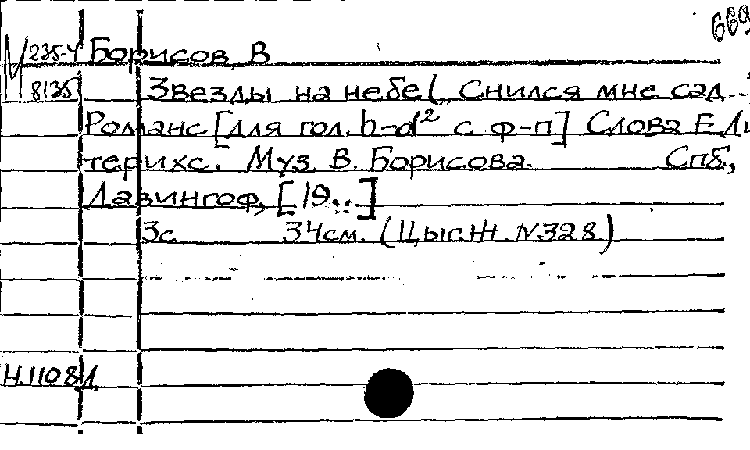 669
М 235-4 Борисов, В
8135 Звезды на небе (Снился мне сад...
Романс [для гол. h-d² с ф-п] Слова Е. Ди
терихс. Муз. В. Борисова. Спб,
Давингоф, [19..]
3с. 34см. (Цыг. Ж. N328)
Н.1108